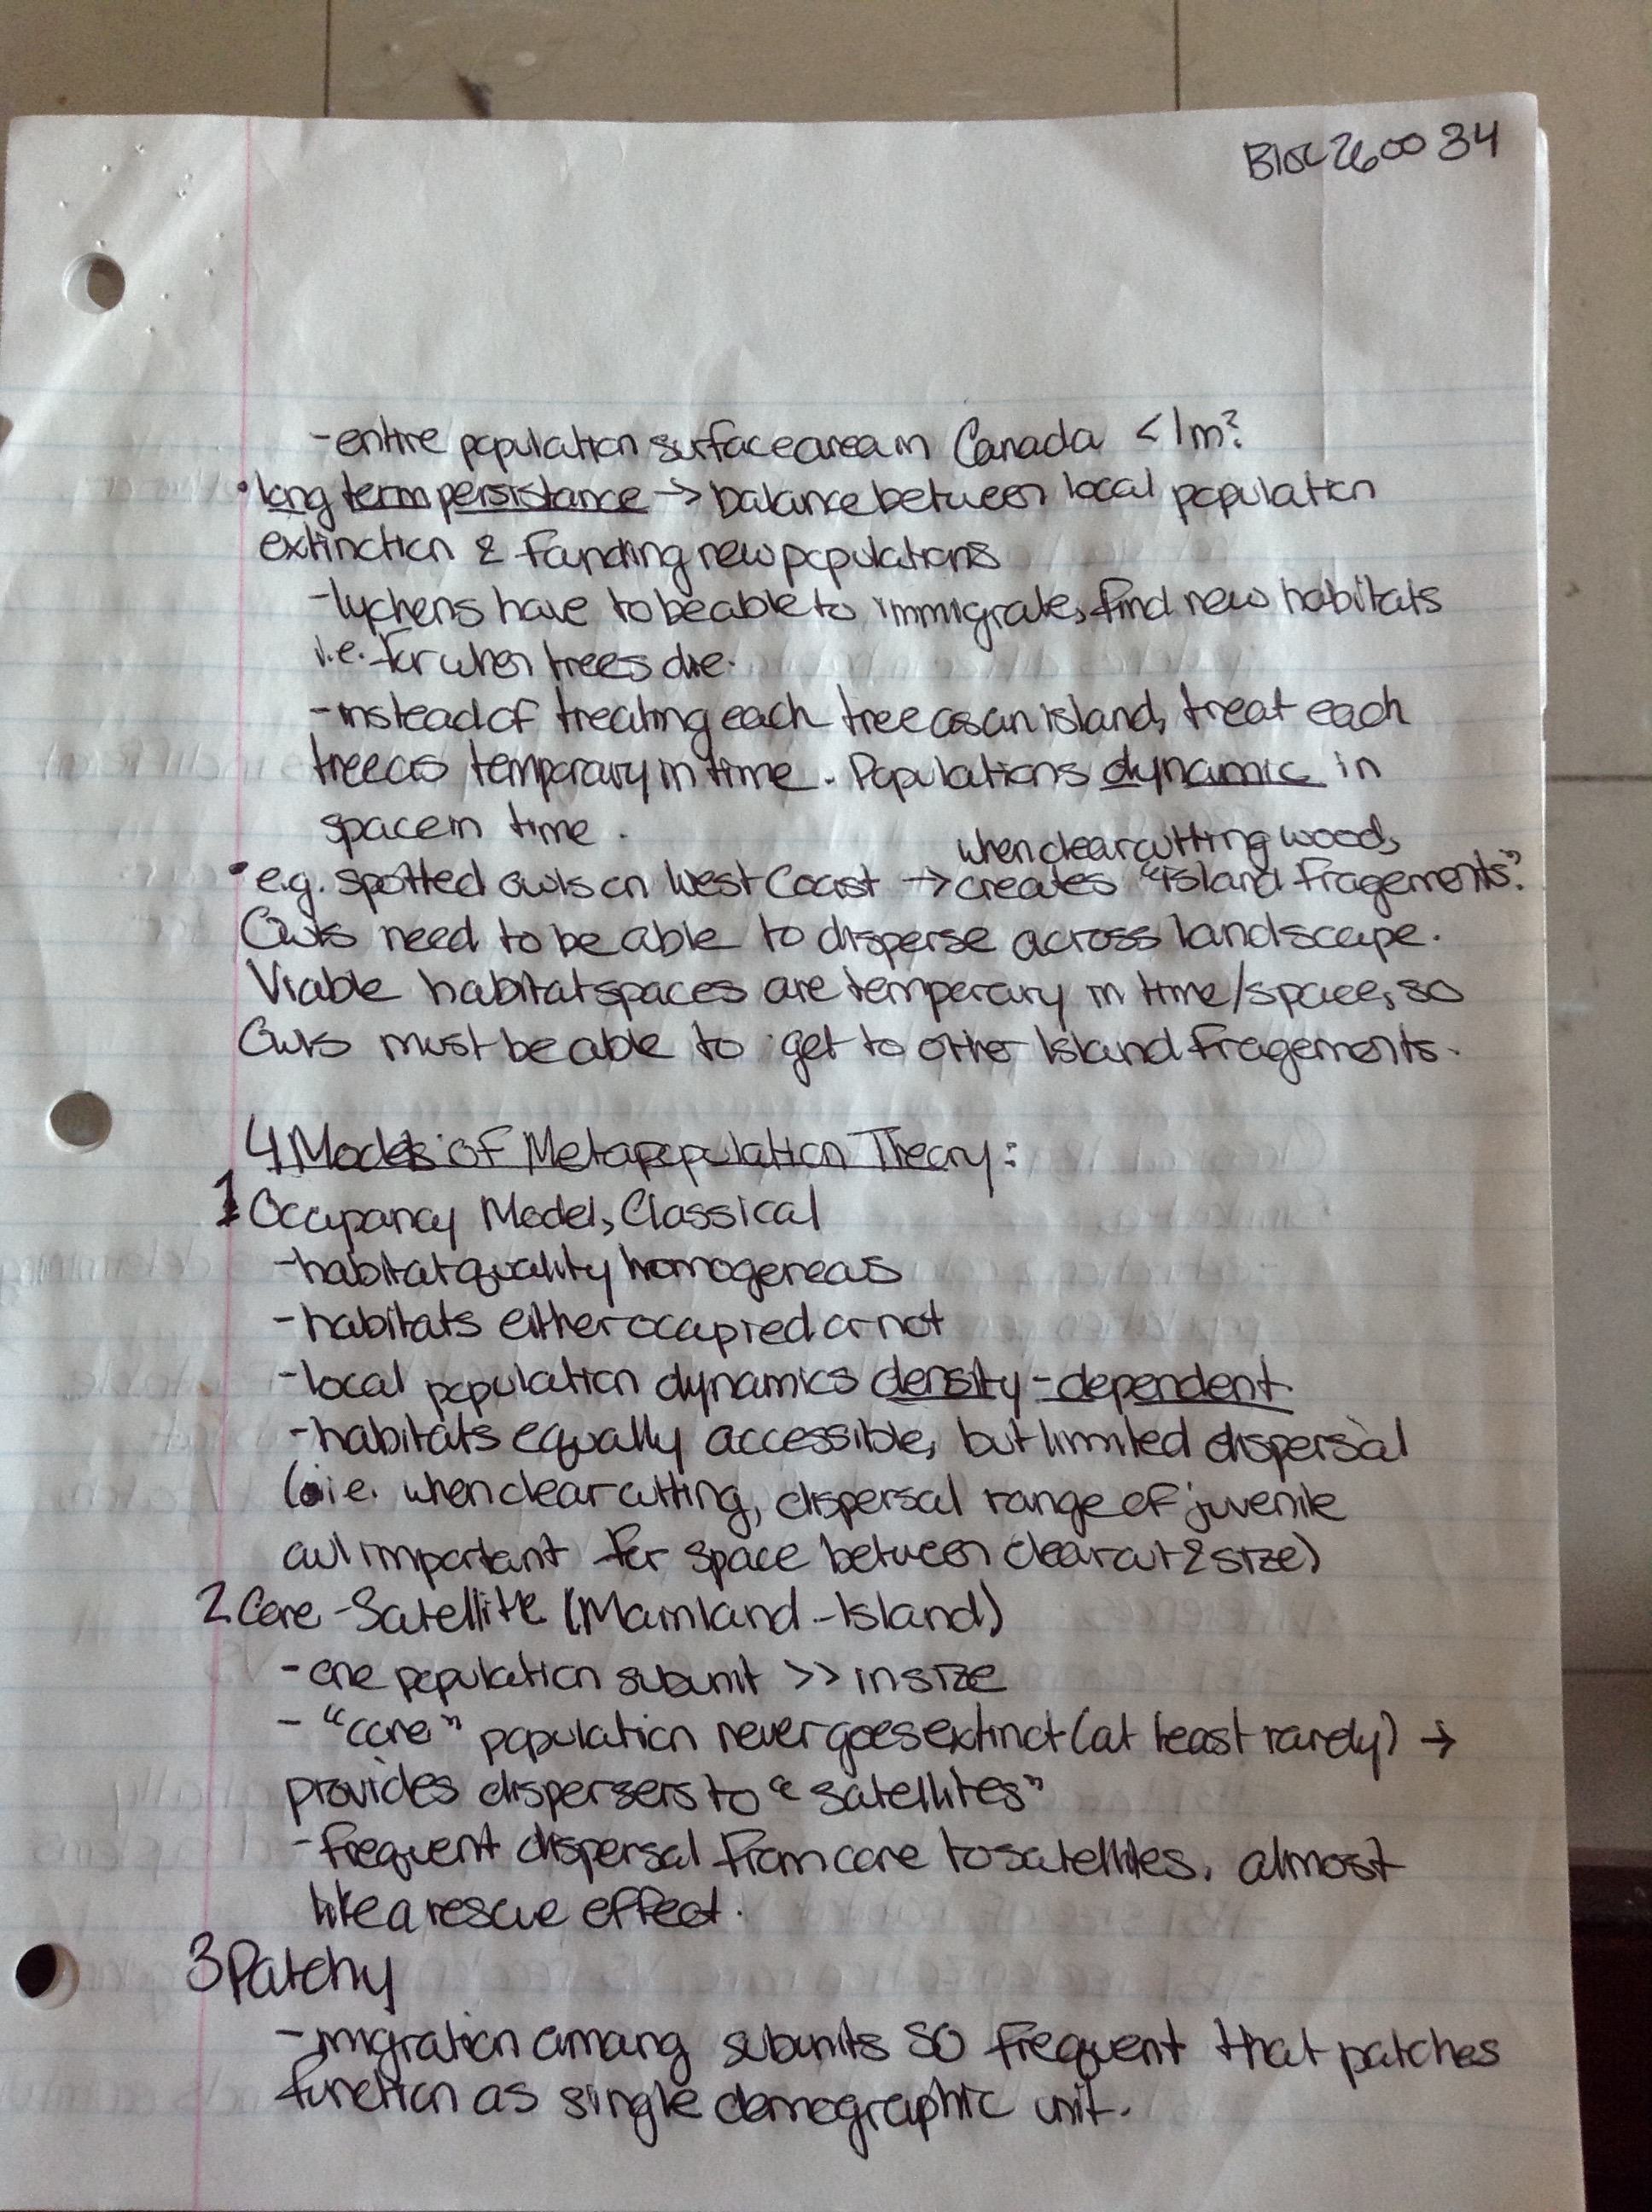 Bloc 2600 34
-entire population surface area in Canada <1m².
• long term persistance → balance between local population
extinction & founding new populations
-lychens have to be able to immigrate, find new habitats
i.e. for when trees die.
-instead of treating each tree as an island, treat each
tree as temporary in time. Populations dynamic in
space in time.
when clearcutting woods,
• e.g. spotted owls on West Coast → creates "island fragements".
Owls need to be able to disperse across landscape.
Viable habitat spaces are temperary in time/space, so
Owls must be able to get to other Island fragements.
4 Models of Metapopulation Theory:
1 Occupancy Model, Classical
-habitat quality homogeneous
-habitats either occupied or not
-local population dynamics density-dependent
-habitats equally accessible, but limited dispersal
(i.e. when clearcutting, dispersal range of juvenile
owl important for space between clearcut & size)
2 Core-Satellite (Mainland-Island)
-one population subunit >> in size
- "core" population never goes extinct (at least rarely) →
provides dispersers to "satellites"
-frequent dispersal from core to satellites, almost
like a rescue effect.
3 Patchy
-migration among subunits so frequent that patches
function as single demographic unit.